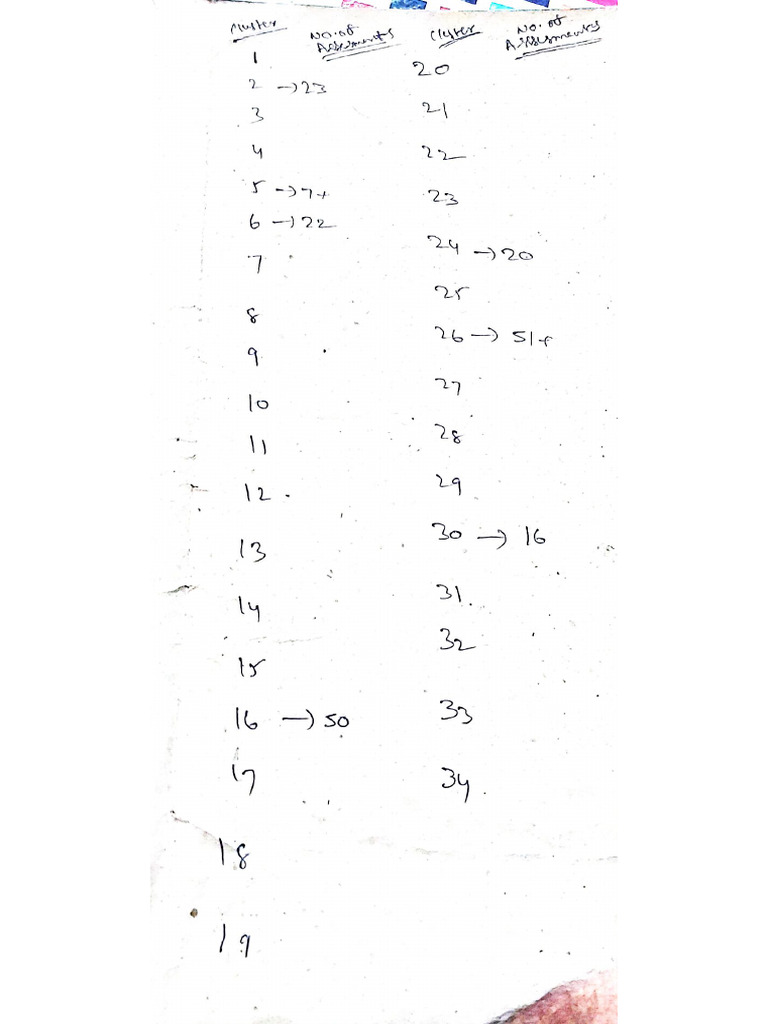 Cluster No. of Assessments
1
2 → 23
3
4
5 → 7+
6 → 22
7
8
9
10
11
12.
13
14
15
16 → 50
17
18
19
Cluster No. of Assessments
20
21
22
23
24 → 20
25
26 → 51+
27
28
29
30 → 16
31.
32
33
34.